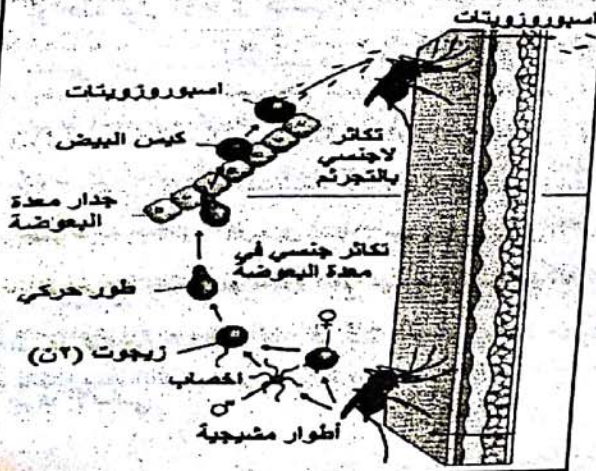 اسبوروزويتات
اسبوروزويتات
كيس البيض
تكاثر
لاجنسي
بالتجرثم
جدار معدة
البعوضة
تكاثر جنسي في
معدة البعوضة
طور حركي
♀
زيجوت (٢ن)
أخصاب
♂
أطوار مشيجية